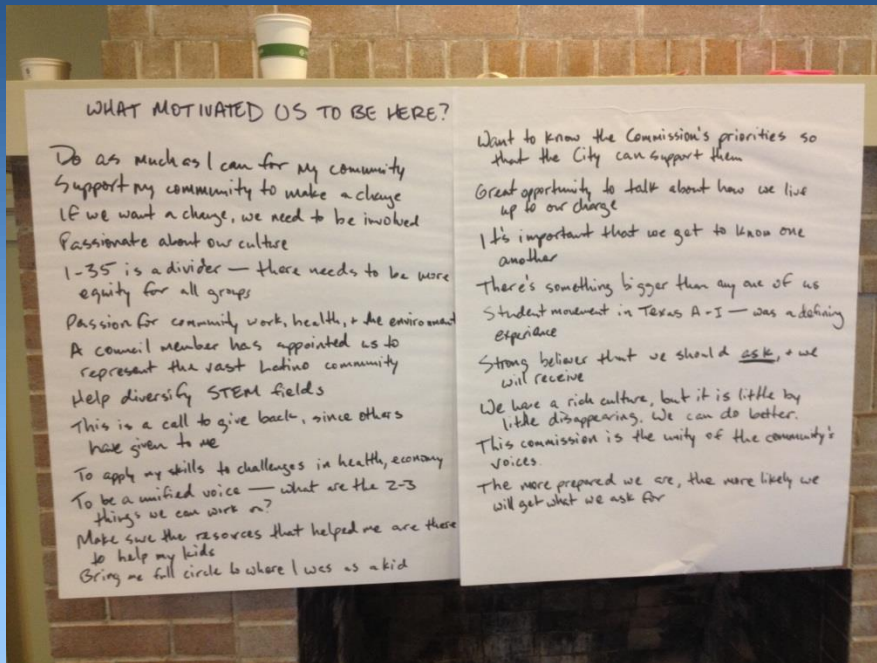 WHAT MOTIVATED US TO BE HERE?
Do as much as I can for my community
Support my community to make a change
If we want a change, we need to be involved
Passionate about our culture
I-35 is a divider — there needs to be more
equity for all groups
Passion for community work, health, + the environment
A council member has appointed us to
represent the vast Latino community
Help diversify STEM fields
This is a call to give back, since others
have given to me
To apply my skills to challenges in health, economy
To be a unified voice — what are the 2-3
things we can work on?
Make sure the resources that helped me are there
to help my kids
Bring me full circle to where I was as a kid
Want to know the Commission's priorities so
that the City can support them
Great opportunity to talk about how we live
up to our charge
It's important that we get to know one
another
There's something bigger than any one of us
Student movement in Texas A-I — was a defining
experience
Strong believer that we should ask, + we
will receive
We have a rich culture, but it is little by
little disappearing. We can do better.
This commission is the unity of the community's
voices.
The more prepared we are, the more likely we
will get what we ask for